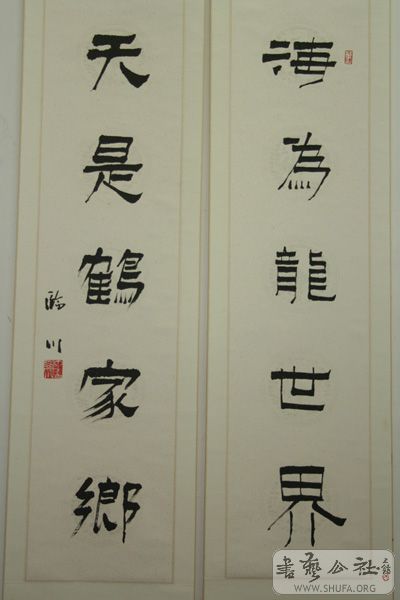 海為龍世界
天是鶴家鄉
書藝公社
WWW.SHUFA.ORG